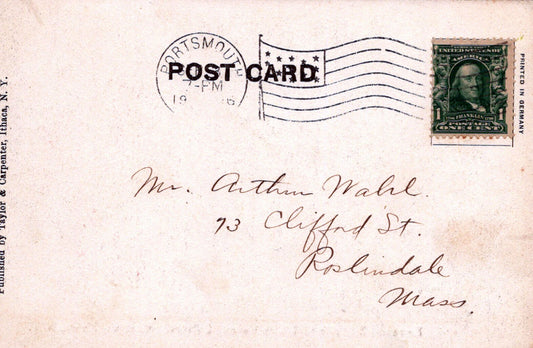 PORTSMOUTH
7-PM
19 6
POST CARD
UNITED STATES OF
AMERICA
FRANKLIN
1 1
POSTAGE
ONE CENT
PRINTED IN GERMANY
Published by Taylor & Carpenter, Ithaca, N. Y.
Mr. Arthur Wahl.
73 Clifford St.
Roslindale
Mass.